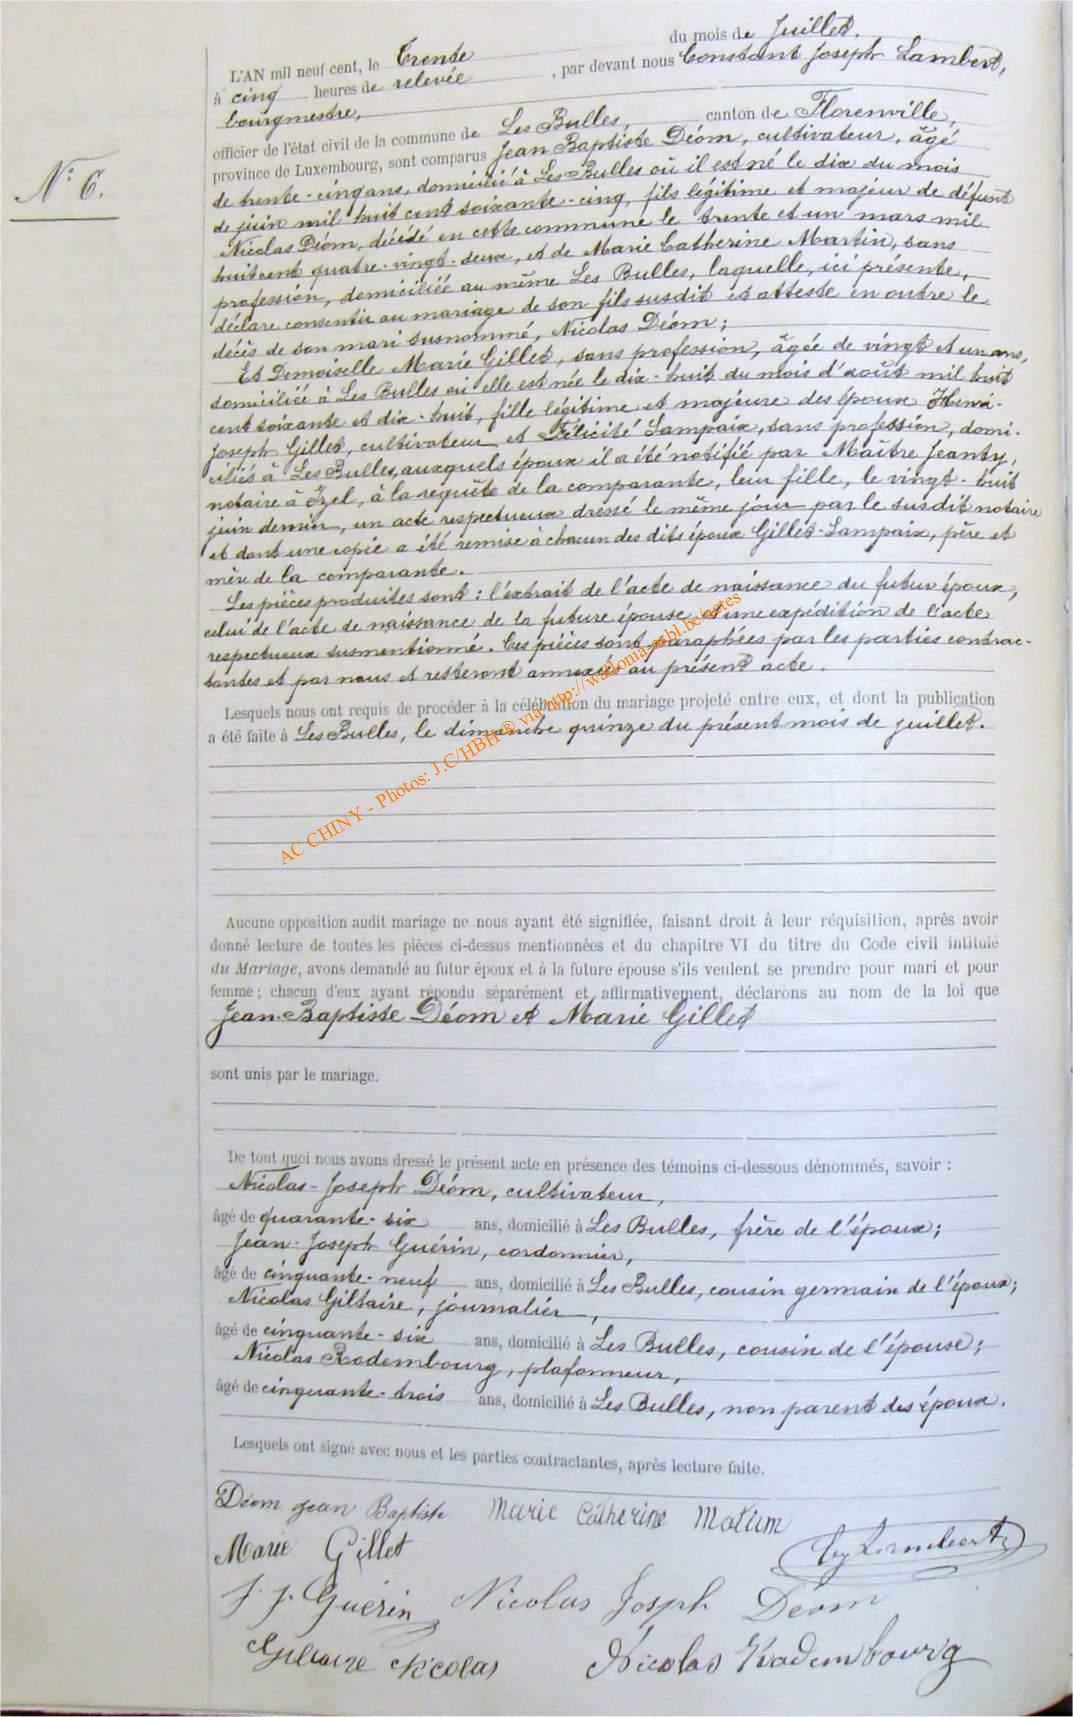 N° 6.
L'AN mil neuf cent, le Trente du mois de Juillet.
à cinq heures de relevée, par devant nous Constant Joseph Lambert,
bourgmestre,
officier de l'état civil de la commune de Les Bulles, canton de Florenville,
province de Luxembourg, sont comparus Jean Baptiste Déom, cultivateur, âgé
de trente-cinq ans, domicilié à Les Bulles où il est né le dix du mois
de juin mil huit cent soixante-cinq, fils légitime et majeur de défunt
Nicolas Déom, décédé en cette commune le trente et un mars mil
huitcent quatre-vingt-deux, et de Marie Catherine Martin, sans
profession, domiciliée au même Les Bulles, laquelle, ici présente,
déclare consentir au mariage de son fils susdit et atteste en outre le
décès de son mari susnommé, Nicolas Déom;
Et Demoiselle Marie Gillet, sans profession, âgée de vingt et un ans,
domiciliée à Les Bulles où elle est née le dix-huit du mois d'août mil huit
cent soixante et dix-huit, fille légitime et majeure des époux Henri-
Joseph Gillet, cultivateur et Félicité Lampaix, sans profession, domi-
ciliés à Les Bulles, auxquels époux il a été notifié par Maître Jeanty,
notaire à Izel, à la requête de la comparante, leur fille, le vingt-huit
juin dernier, un acte respectueux dressé le même jour par le susdit notaire
et dont une copie a été remise à chacun des dits époux Gillet-Lampaix, père et
mère de la comparante.
Les pièces produites sont: l'extrait de l'acte de naissance du futur époux,
celui de l'acte de naissance de la future épouse et une expédition de l'acte
respectueux susmentionné. Ces pièces sont paraphées par les parties contrac-
tantes et par nous et resteront annexées au présent acte.
Lesquels nous ont requis de procéder à la célébration du mariage projeté entre eux, et dont la publication
a été faite à Les Bulles, le dimanche quinze du présent mois de juillet.
AC CHINY - Photos: J.C/HBH © via http://wallonia-asbl.be/actes
Aucune opposition audit mariage ne nous ayant été signifiée, faisant droit à leur réquisition, après avoir
donné lecture de toutes les pièces ci-dessus mentionnées et du chapitre VI du titre du Code civil intitulé
du Mariage, avons demandé au futur époux et à la future épouse s'ils veulent se prendre pour mari et pour
femme; chacun d'eux ayant répondu séparément et affirmativement, déclarons au nom de la loi que
Jean-Baptiste Déom et Marie Gillet
sont unis par le mariage.
De tout quoi nous avons dressé le présent acte en présence des témoins ci-dessous dénommés, savoir :
Nicolas-Joseph Déom, cultivateur,
âgé de quarante-six ans, domicilié à Les Bulles, frère de l'époux;
Jean-Joseph Guérin, cordonnier,
âgé de cinquante-neuf ans, domicilié à Les Bulles, cousin germain de l'époux;
Nicolas Giltaire, journalier,
âgé de cinquante-six ans, domicilié à Les Bulles, cousin de l'épouse;
Nicolas Rodembourg, plafonneur,
âgé de cinquante-trois ans, domicilié à Les Bulles, non parent des époux.
Lesquels ont signé avec nous et les parties contractantes, après lecture faite.
Déom Jean Baptiste Marie Catherine Martin
Marie Gillet Lambert
J. J. Guérin Nicolas Joseph Déom
Giltaire Nicolas Nicolas Rodembourg